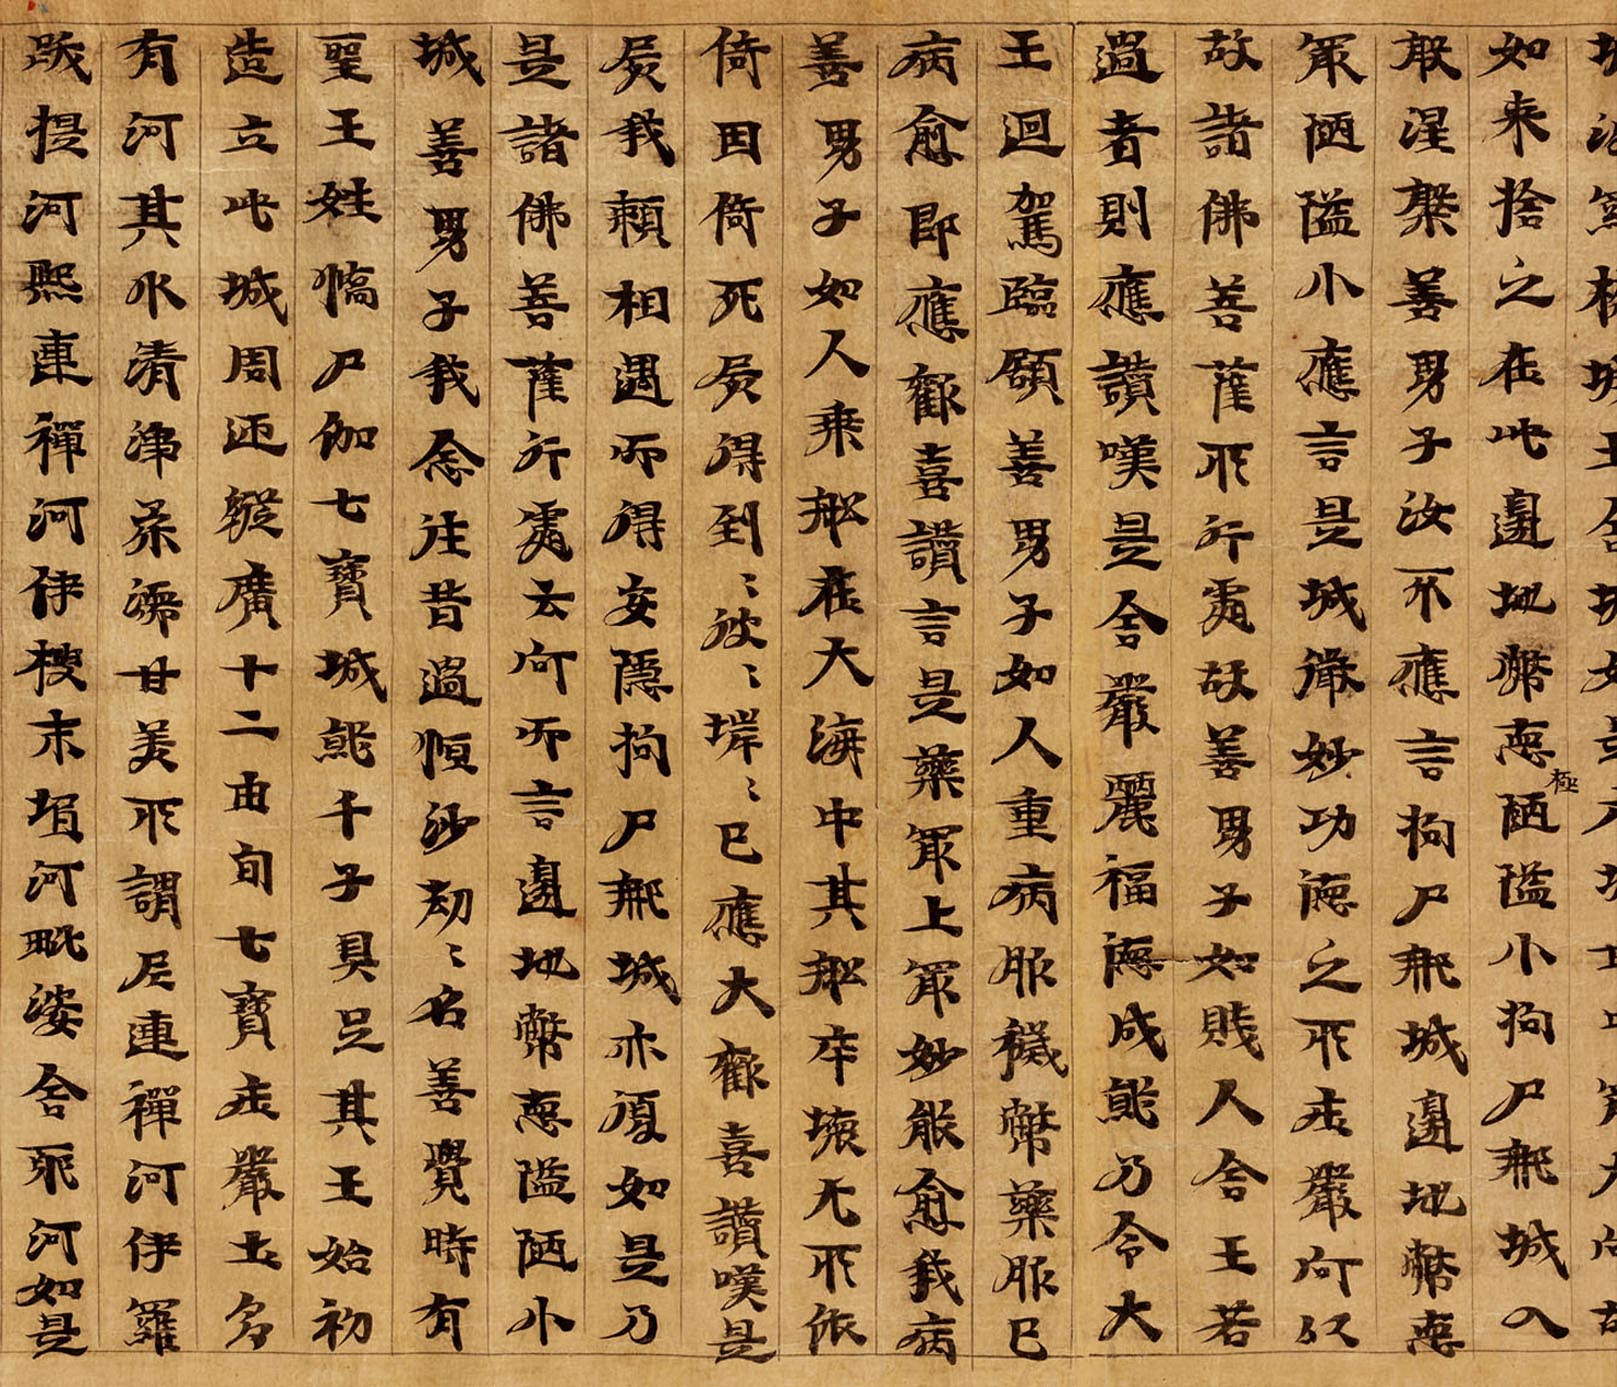 如来捨之在此邊地弊惡極陋隘小拘尸那城入
般涅槃善男子汝不應言拘尸那城邊地弊惡
冣陋隘小應言是城微妙功德之所莊嚴何以
故諸佛菩薩所行處故善男子如賤人舍王若
過者則應讃嘆是舍嚴麗福德成就乃令大
王迴駕臨顧善男子如人重病服穢弊藥服已
病愈即應歡喜讃言是藥冣上冣妙能愈我病
善男子如人乘船在大海中其船卒壞无所依
倚因倚死屍得到〻彼〻岸〻已應大歡喜讃嘆是
屍我賴相遇而得安隱拘尸那城亦復如是乃
是諸佛菩薩行處云何而言邊地弊惡隘陋小
城善男子我念往昔過恒沙劫〻名善覺時有
聖王姓憍尸伽七寶城就千子具足其王始初
造立此城周迊縱廣十二由旬七寶莊嚴土多
有河其水清淨柔濡甘美所謂尼連禪河伊羅
跋提河熙連禪河伊搜末埍河毗婆舍那河如是